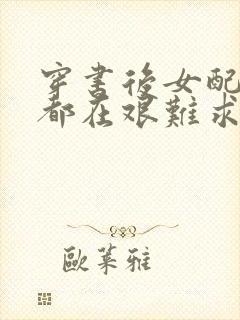 穿書後女配
都在艱難求
歐萊雅